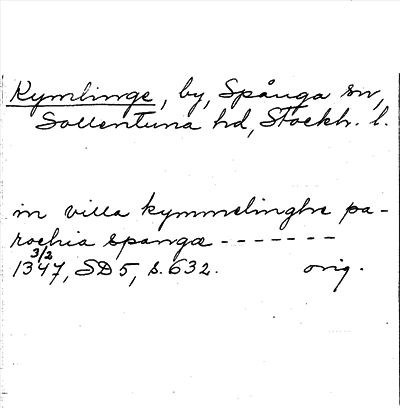 Kymlinge, by, Spånga sn,
Sollentuna hd, Stockh. l.
in villa kymmelinghe pa-
rochia spanga -------
13 3/2 47, SD 5, s. 632. orig.